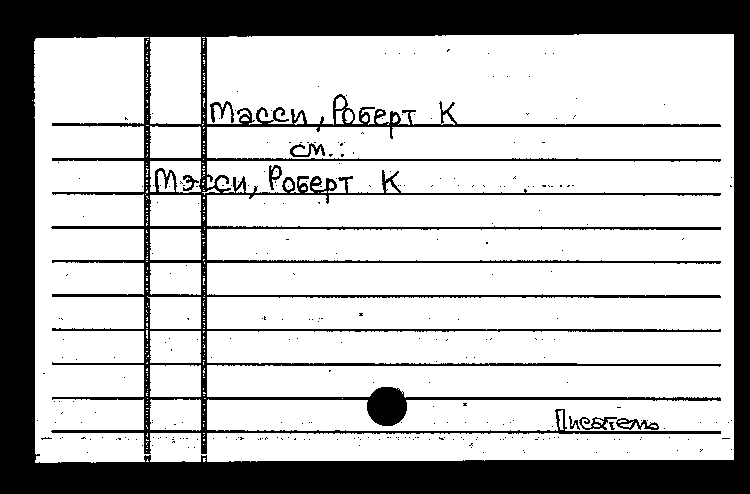 Масси, Роберт К
см.:
Мэсси, Роберт К
Писатель